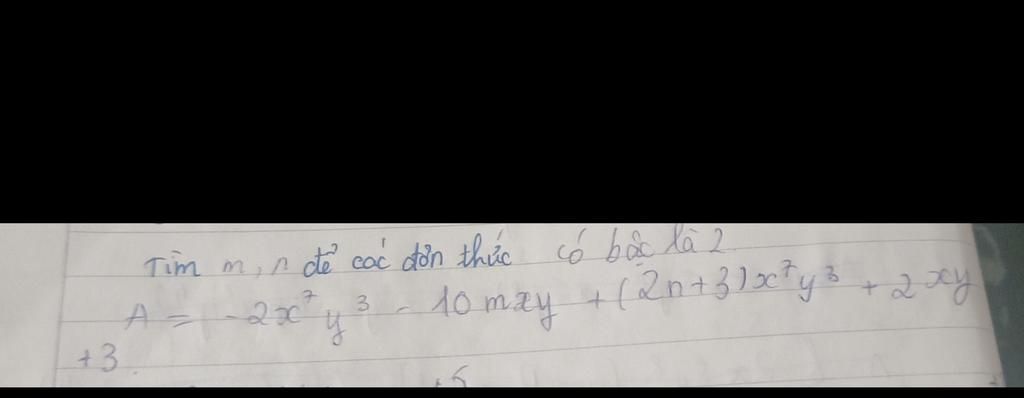 Tìm m, n để các đơn thức có bậc là 2
A = -2x⁷y³ - 10mxy + (2n+3)x⁷y³ + 2xy
+3